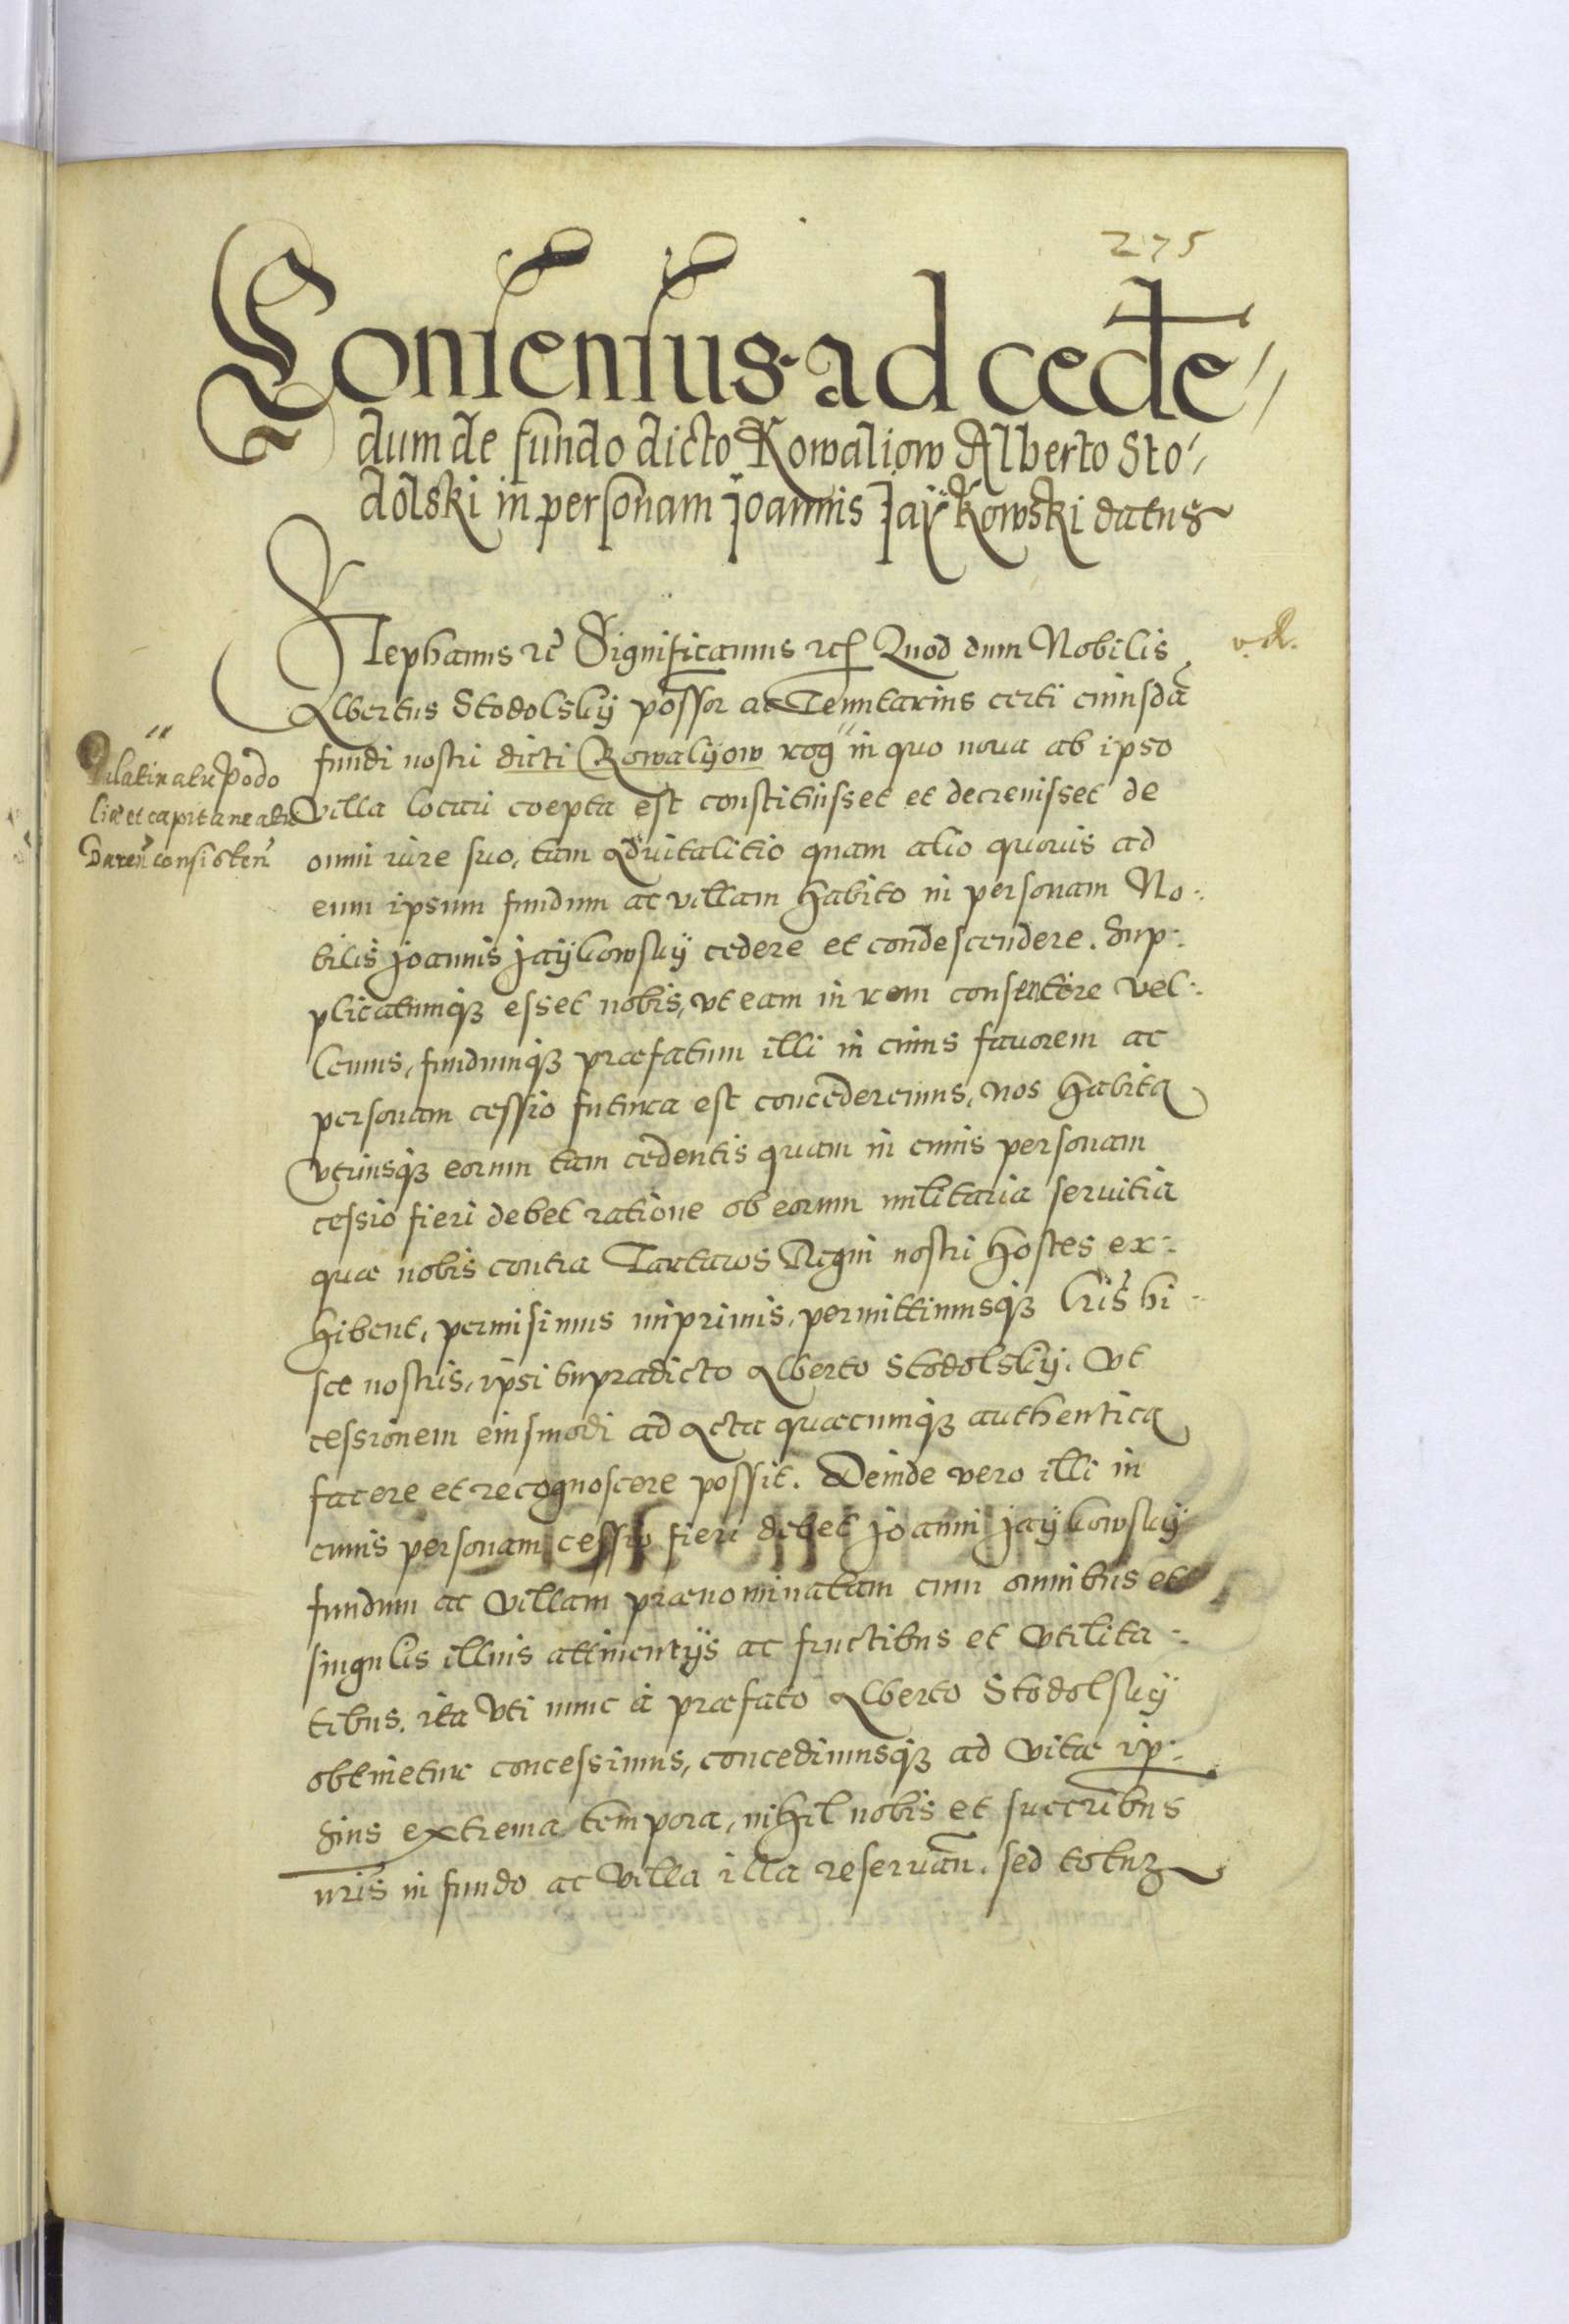 275
Consensus ad cede
dum de fundo dicto Kowaliow Alberto Sto
dolski in personam Joannis Jaÿkowski datus
Stephanus rc̃ Significamus rc̃ Quod dum Nobilis
v. R.
Albertus Stodolskÿ possor ac Tenutarius certi cuiusdã
fundi nostri dicti Kowalÿow in quo noua ab ipso
Palatinatu Podo
liæ et capitaneatu
consisteñ
villa locari coepta est constituisset et decreuisset de
omni iure suo, tam aduitalitio quam alio quouis ad
eum ipsum fundum ac villam habito in personam No:
bilis Joannis Jaÿkowskÿ cedere et condescendere. Sup:
plicatumq₃ esset nobis, vt eam in rem consentire vel:
lemus, fundumq₃ præfatum illi in cuius fauorem ac
personam cessio futura est concederemus, nos habita
vtriusq₃ eorum tam cedentis quam in cuius personam
cessio fieri debet ratione ob eorum militaria seruitia
quæ nobis contra Tartaros Regni nostri hostes ex:
hibent, permisimus imprimis, permittimusq₃ lr̃is hi
sce nostris, ipsi supradicto Alberto Stodolskÿ. Vt
cessionem eiusmodi ad Acta quæcumq₃ authentica
facere et recognoscere possit. Deinde vero illi in
cuius personam cessio fieri debet Joanni Jaÿkowskÿ
fundum ac villam prænominatam cum omnibus et
singulis illius attinentÿs ac fructibus et vtilita:
tibus. ita vti nunc à præfato Alberto Stodolskÿ
obtinetur concessimus, concedimusq₃ ad vitæ ip:
sius extrema tempora, nihil nobis et succr̃ibus
nr̃is in fundo ac villa illa reseruañ. sed totuʒ